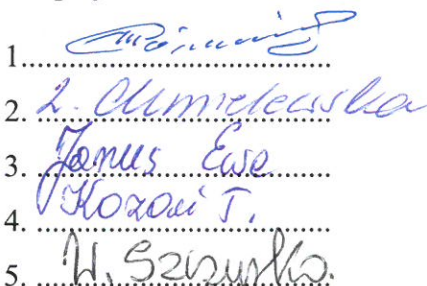 1..............................
2. L. Chmielewska
3. Janus Ewa
4. Kozoń T.
5. W. Szczypko.